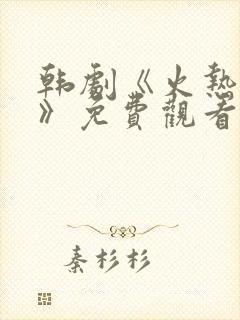 韩劇《火熱
》免費觀看
秦杉杉